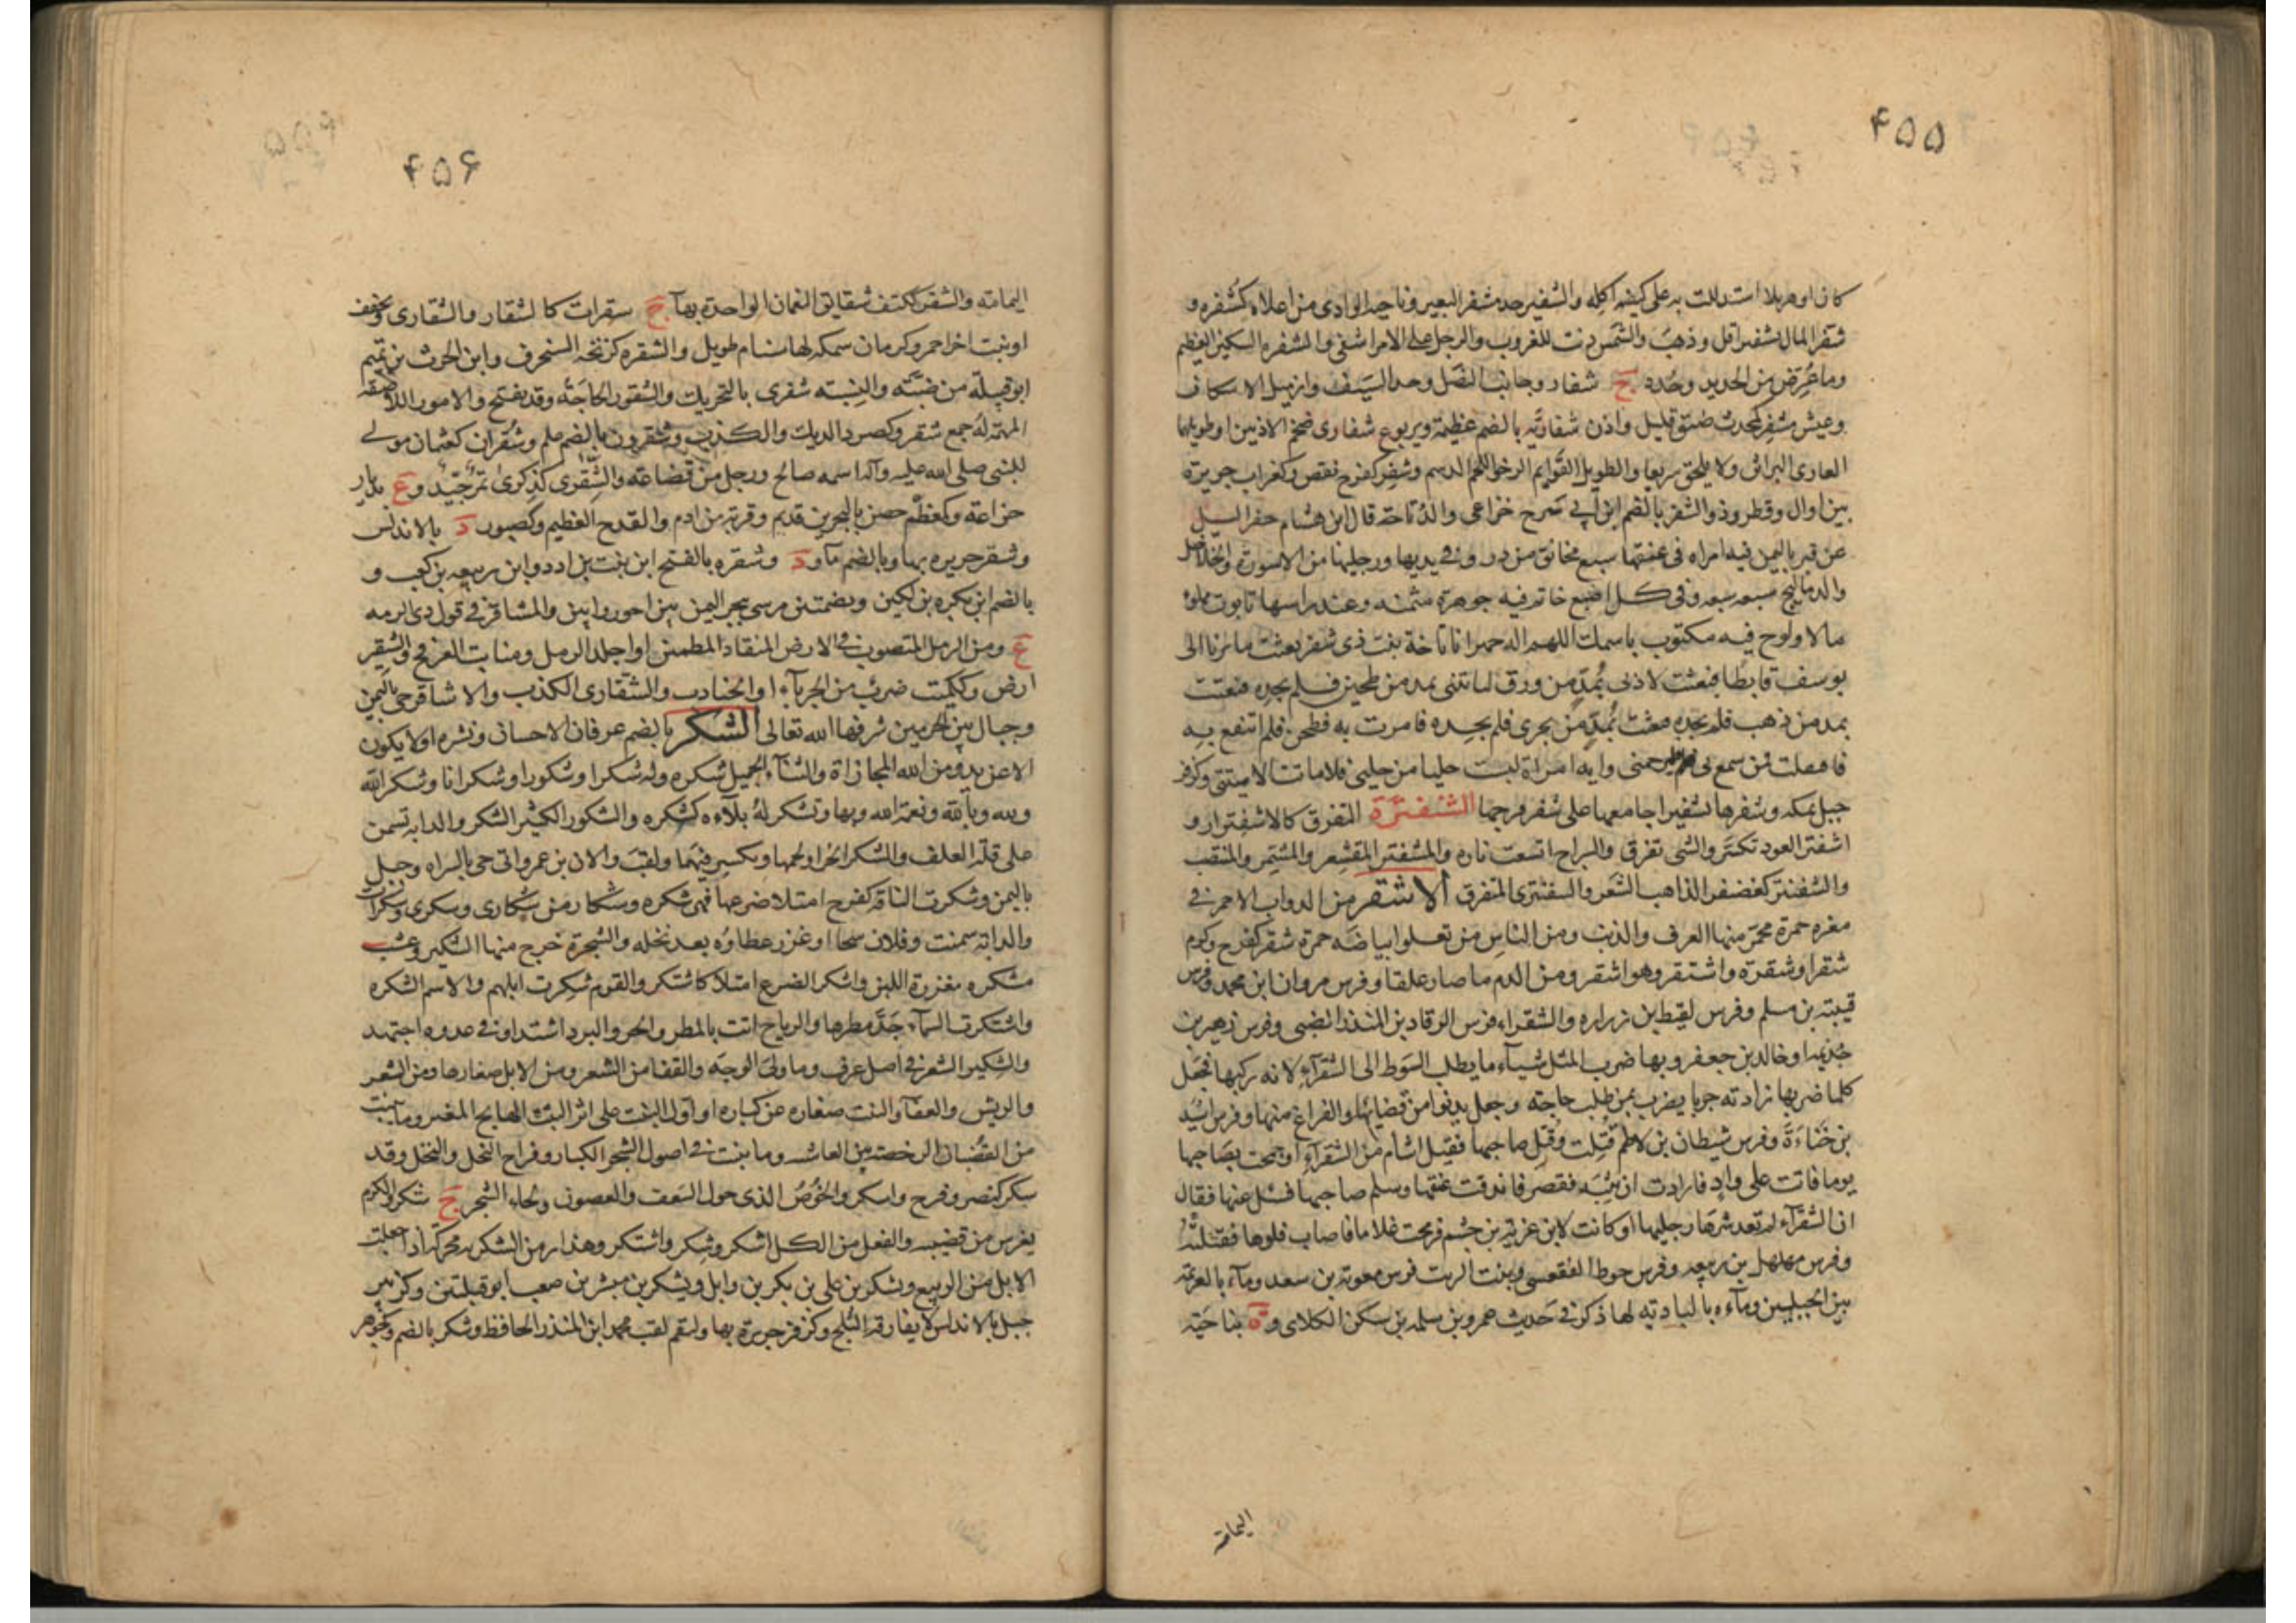 ۴۵۵
كان او هزيلا استدللت به على كيفية اكله والشفير حد مشفر البعير وناحية الوادى من اعلاه كشفره و
شفر المال تشفيرا قل وذهب والشمس دنت للغروب والرجل على الامر اشفى والشفره السكين العظيم
وما عرض من الحديد وحدد ج شفار وجانب النصل وحد السيف وازميل الاسكاف
وعيش مشفر كمحدث ضيق قليل واذن شفارية بالضم عظيمة ويربوع شفارى ضخم الاذنين او طويلهما
العارى البراثن ولا يلحق سريعا والطويل القوايم الرخو اللحم الدسم وشفر كفرح نقص وكغراب جزيرة
بين اوال وقطر وذو الشفر بالضم ابن ابى سرح خزاعى والد تاجة قال ابن هشام حفر السيل
عن قبر باليمن فيه امراه فى عنقها سبع مخانق من در وفى يديها ورجليها من الاسورة والخلاخل
والدماليج سبعه سبعه وفى كل اصبع خاتم فيه جوهرة مثمنه وعند راسها تابوت مملوء
مالا ولوح فيه مكتوب باسمك اللهم اله حمير انا تاجة بنت ذى شفر بعثت مائرنا الى
يوسف فابطا فبعثت لاذتى بمد من ورق لتاتنى بمد من طحين فلم يجده فبعثت
بمد من ذهب فلم يجده فبعثت بمد من بحرى فلم يجده فامرت به فطحن فلم انتفع به
فاقفلت فمن سمع بى فليرحمنى واية امراة لبست حليا من حليى فلا ماتت الا ميتتى وكزفر
جبل بمكه وشفرها تشفيرا جامعها على شفر فرجها الشفترة التفرق كالاشفترار و
اشفتر العود تكسر والشى تفرق والسراج اتسعت ناره والمشفتر المقشعر والمشمر والمنتصب
والشفنتر كغضنفر الذاهب الشعر والشفنترى المتفرق الاشقر من الدواب الاحمر فى
مغره حمرة يحمر منها العرف والذنب ومن الناس من تعلوا بياضه حمرة شقر كفرح وكرم
شقرا وشقرة واشتقر وهو اشقر ومن الدم ما صار علقا وفرس مروان ابن محمد وفرس
قتيبة بن مسلم وفرس لقيط بن زراره والشقراء فرس الوقاد بن المنذر الضبى وفرس زهير بن
جذيمه او خالد بن جعفر وبها ضرب المثل شيئا ما يطلب السوط الى الشقراء لانه ركبها فجعل
كلما ضربها زادته جريا يضرب لمن طلب حاجته وجعل يدنوا من قضائها والفراغ منها وفرس اسيد
بن حناءة وفرس شيطان بن لاطم قتلت وقتل صاحبها فقيل اشام من الشقراء او جمحت بصاحبها
يوما فاتت على واد فارادت ان تثبه فقصرت فاندقت عنقها وسلم صاحبها فسئل عنها فقال
ان الشقراء لم تعد شرها رجليها او كانت لابن غزية بن جشم فرمحت غلاما فاصاب فلوها فقتلته
وفرس مهلهل بن ربيعه وفرس حوط الفقعسى وبنت الزيت فرس معوية بن سعد وماء بالعريمة
بين الجبلين وماءه بالبادية لها ذكر فى حديث عمرو بن سلمه بن سكن الكلابى وة بناحية
اليمامة
۴۵۶
اليمامه والشقر ككتف شقايق النعمان الواحدة بهاء ج شقرات كالشقار والشقارى ويخفف
او نبت اخر احمر وكرمان سمكه لها سنام طويل والشقره كزنخه السنجرف وابن الحرث بن تميم
ابو قبيلة من ضبة والنسبة شقرى بالتحريك والشقور الحاجة وقد يفتح والامور اللاصقه
المهمة له جمع شقر وكصرد الديك والكذب وشقرون بالضم علم وشقران كعثمان مولى
للنبى صلى الله عليه وآله اسمه صالح ورجل من قضاعة والشقرى كذكرى تمر جيد وع بديار
خزاعة وكمعظم حصن بالبحرين قديم وقربة من ادم والقدح العظيم وكصبور د بالاندلس
وشقر جزيره بها وبالضم ماء ود وشقره بالفتح ابن نبت بن ادد وابن ربيعه بن كعب و
بالضم ابن بكره بن لكيز وبضمتين مرسى ببحر اليمن بين احور وابين والمشاقر فى قول ذى الرمه
ع ومن الرمل المتصوب فى الارض المنقاد المطمئن او اجلد الرمل ومنابت العرفج والشقير
ارض وككميت ضرب من الحرباء او الجنادب والشقارى الكذب والاشاقر حى باليمن
وجبال بين الحرمين شرفها الله تعالى الشكر بالضم عرفان الاحسان ونشره او لا يكون
الا عن يد ومن الله المجازاة والثناء الجميل شكره وله شكرا وشكورا وشكرانا وشكر الله
ولله وبالله ونعمة الله وبها وتشكر له بلاءه كشكره والشكور الكثير الشكر والدابه تسمن
على قلة العلف والشكر الحر او لحمها ويكسر فيهما ولقب والان بن عمرو اتى حى بالسراه وجبل
باليمن وشكرت الناقة كفرح امتلا ضرعها فهى شكره ومشكار من شكارى وشكرى وشكرات
والدابة سمنت وفلان سخا او غزر عطاؤه بعد بخله والشجرة خرج منها الشكير وعشب
مشكره مغزرة اللبن واشكر الضرع امتلا كاشتكر والقوم شكرت ابلهم والاسم الشكره
واشتكرت السماء جد مطرها والرياح اتت بالمطر والحر والبرد اشتد او فى عدوه اجتهد
والشكير الشعر فى اصل عرف وما ولى الوجه والقفا من الشعر ومن الابل صغارها ومن الشعر
والريش والعفا والنبت صغاره عن كباره او اول النبت على اثر النبت الهايج المغبر وما ينبت
من القضبان الرخصة بين العاسه وما ينبت فى اصول الشجر الكبار وفراخ النخل والنخل وقد
شكر كنصر وفرح واشكر والخوص الذى حول السعف والغصون ولحاء الشجر ج شكر والكرم
يغرس من قضيبه والفعل من الكل اشكر وشكر واشتكر وهذا زمن الشكريه محركة اذا حفلت
الابل من الربيع ويشكر بن على بن بكر بن وايل ويشكر بن مبشر بن صعب ابو قبيلتين وكزبير
جبل بالاندلس لا يفارقه الثلج وكزفر جزيرة بها ولبقم لقب محمد ابن المنذر الحافظ وشكر بالضم وكجوهر